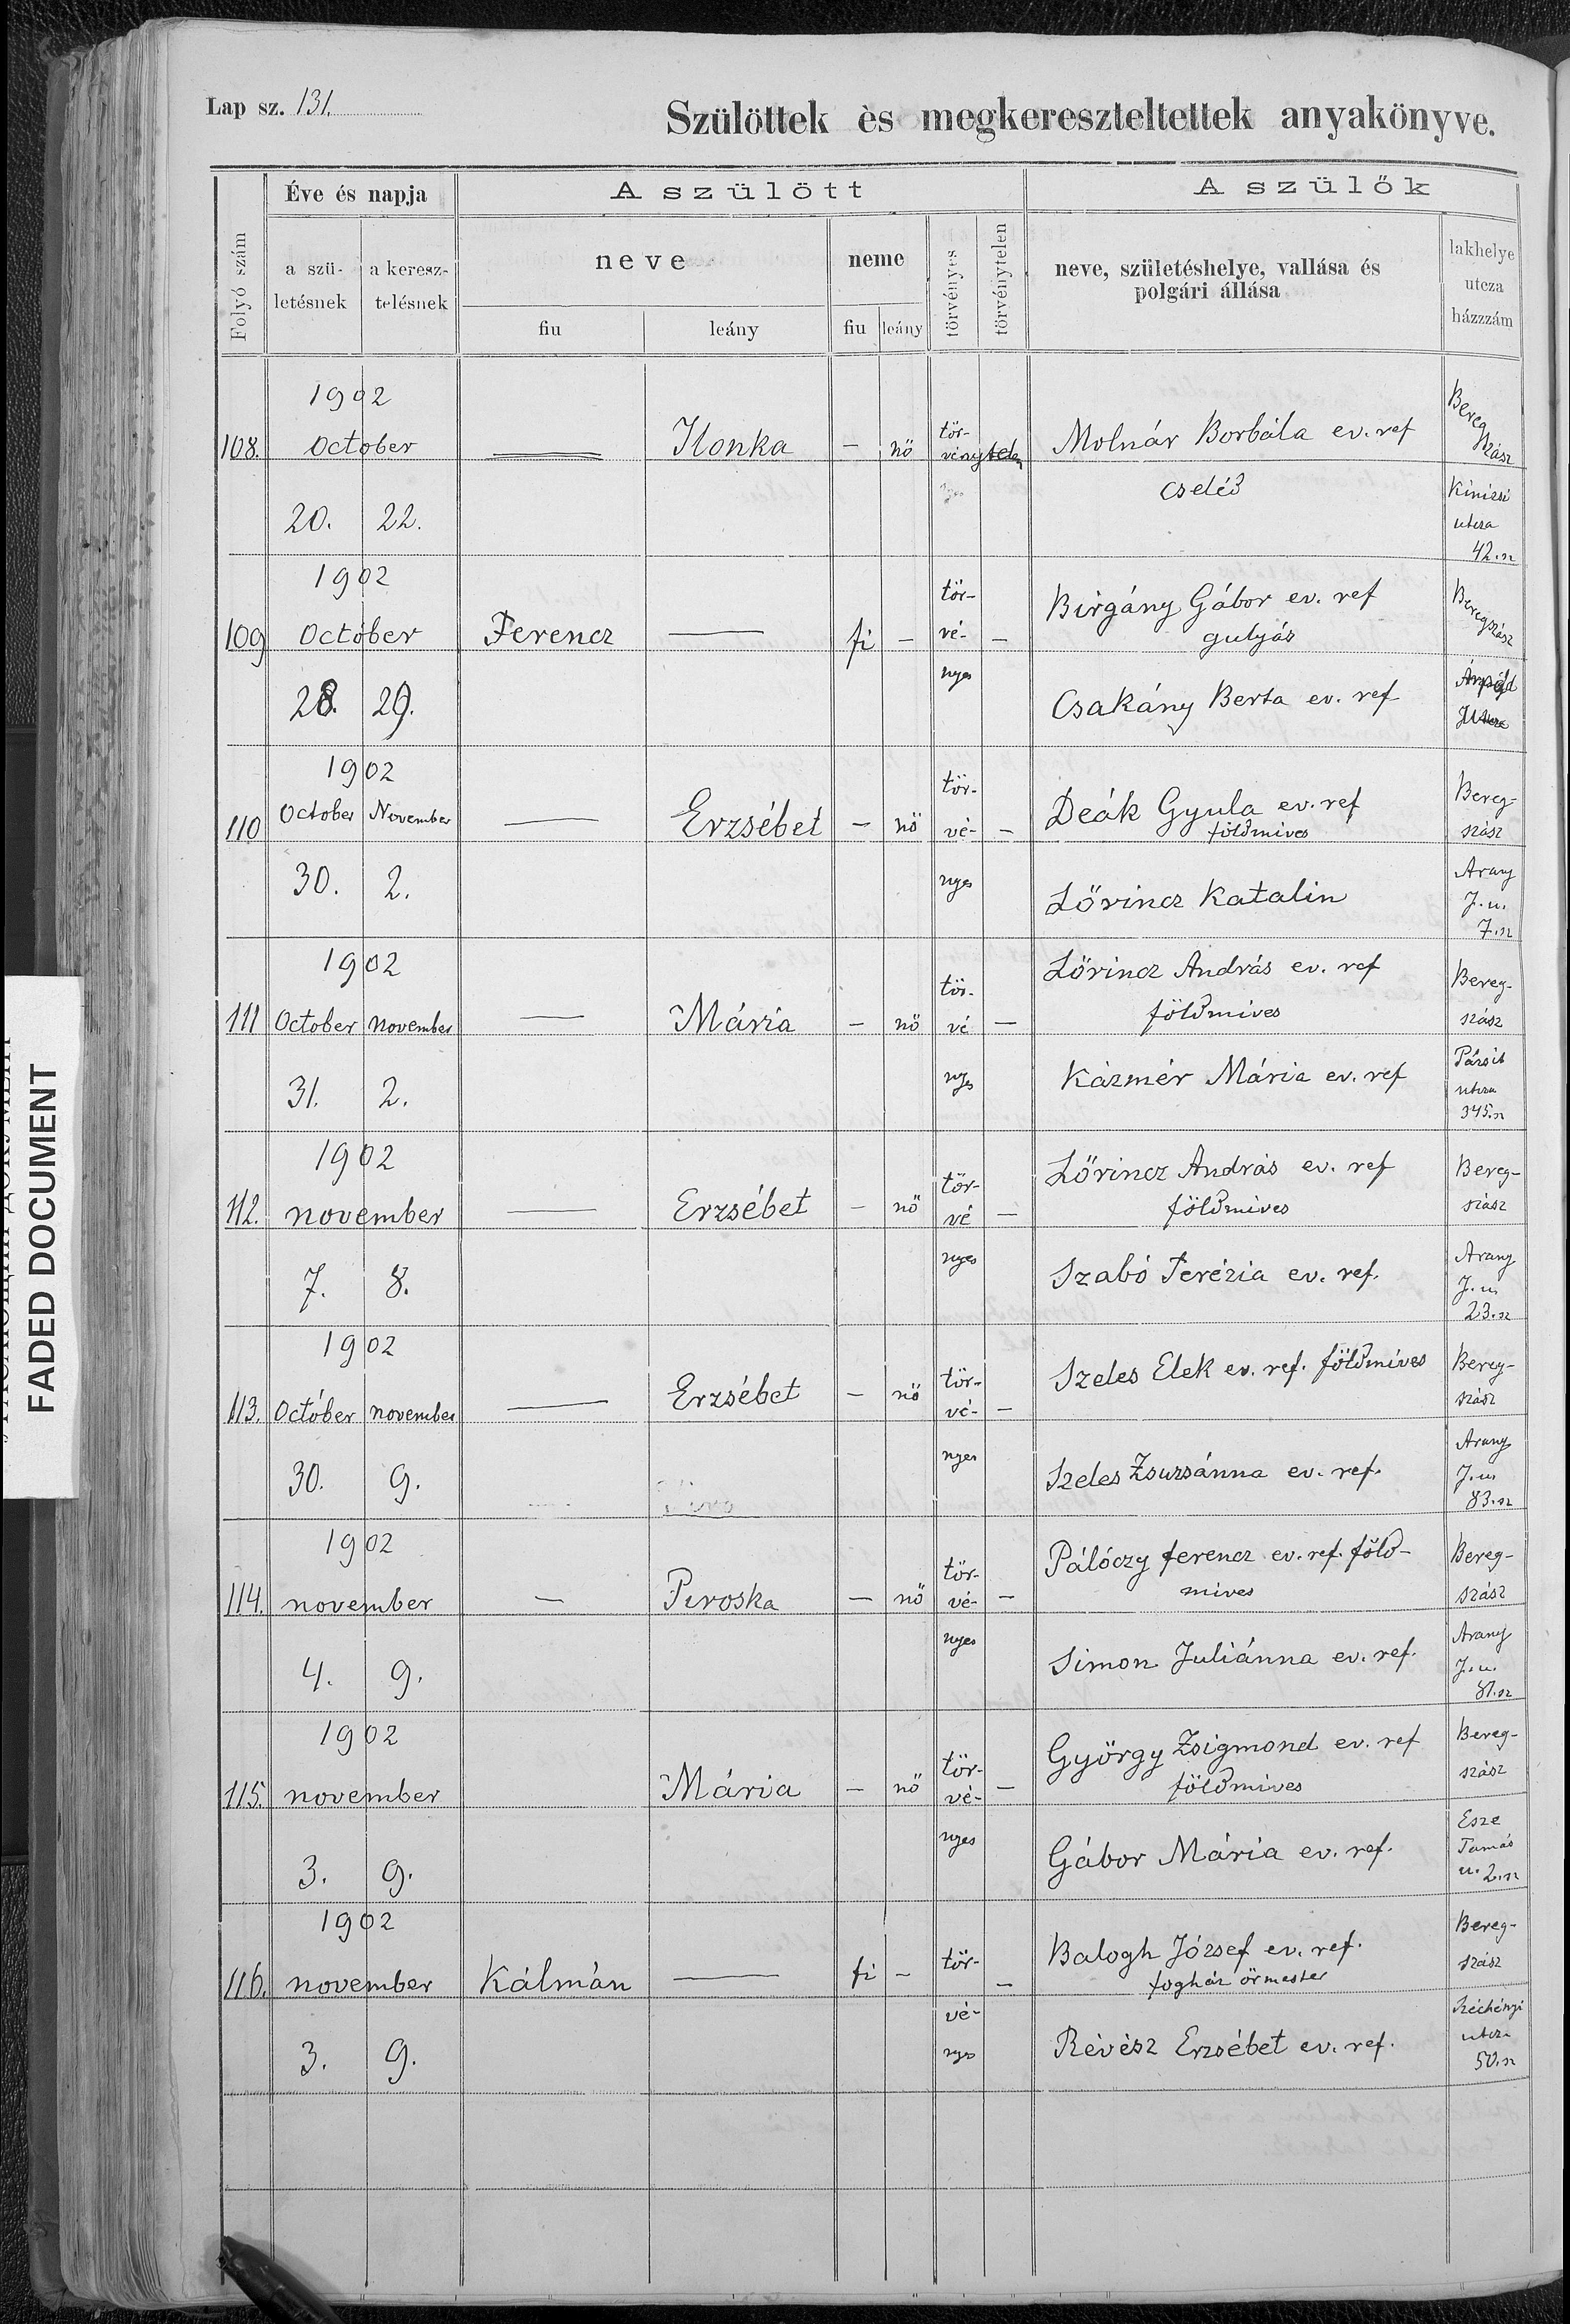 Lap sz. 131.
Szülöttek ès megkereszteltettek anyakönyve.
Folyó szám
Éve és napja
A szülött
A szülők
a szü-
letésnek
a keresz-
telésnek
neve
neme
törvényes
törvénytelen
neve, születéshelye, vallása és
polgári állása
lakhelye
utcza
házzzám
fiu
leány
fiu
leány
1902
108. October Ilonka — nő tör-
vénytelen
Molnár Borbála ev. ref
cseléd
20. 22.
Bereg
szász
Kinizsi
utcza
42. sz
1902
109 October Ferencz — fi — tör-
vé- —
nyes
28. 29.
Birgány Gábor ev. ref
gulyás
Csakány Berta ev. ref
Beregszász
1902
October November
110 — Erzsébet — nő tör-
vé- —
nyes
30. 2.
Deák Gyula ev. ref
földmives
Lőrincz Katalin
Bereg-
szász
Arany
J. u.
7. sz
1902
111 October november — Mária — nő tör-
vé —
nyes
31. 2.
Lőrincz András ev. ref
földmives
Kázmér Mária ev. ref
Bereg-
szász
utcza
345. sz
1902
112. november — Erzsébet — nő tör-
vé —
nyes
7. 8.
Lőrincz András ev. ref
földmives
Szabó Terézia ev. ref.
Bereg-
szász
Arany
J. u.
23. sz
1902
113. Octóber november — Erzsébet — nő tör-
vé- —
nyes
30. 9.
Szeles Elek ev. ref. földmives
Szeles Zsuzsánna ev. ref.
Bereg-
szász
Arany
J. u.
83. sz
1902
114. november — Piroska — nő tör-
vé- —
nyes
4. 9.
Pálóczy ferencz ev. ref. föld-
mives
Simon Juliánna ev. ref.
Bereg-
szász
Arany
J. u.
81. sz
1902
115. november Mária — nő tör-
vé- —
nyes
3. 9.
György Zsigmond ev. ref
földmives
Gábor Mária ev. ref.
Bereg-
szász
Esze
Tamás
u. 2. sz
1902
116. november Kálmán — fi — tör-
—
vé-
nyes
3. 9.
Balogh József ev. ref.
fogház őrmester
Révész Erzsébet ev. ref.
Bereg-
szász
Széchényi
utcza
50. sz
FADED DOCUMENT